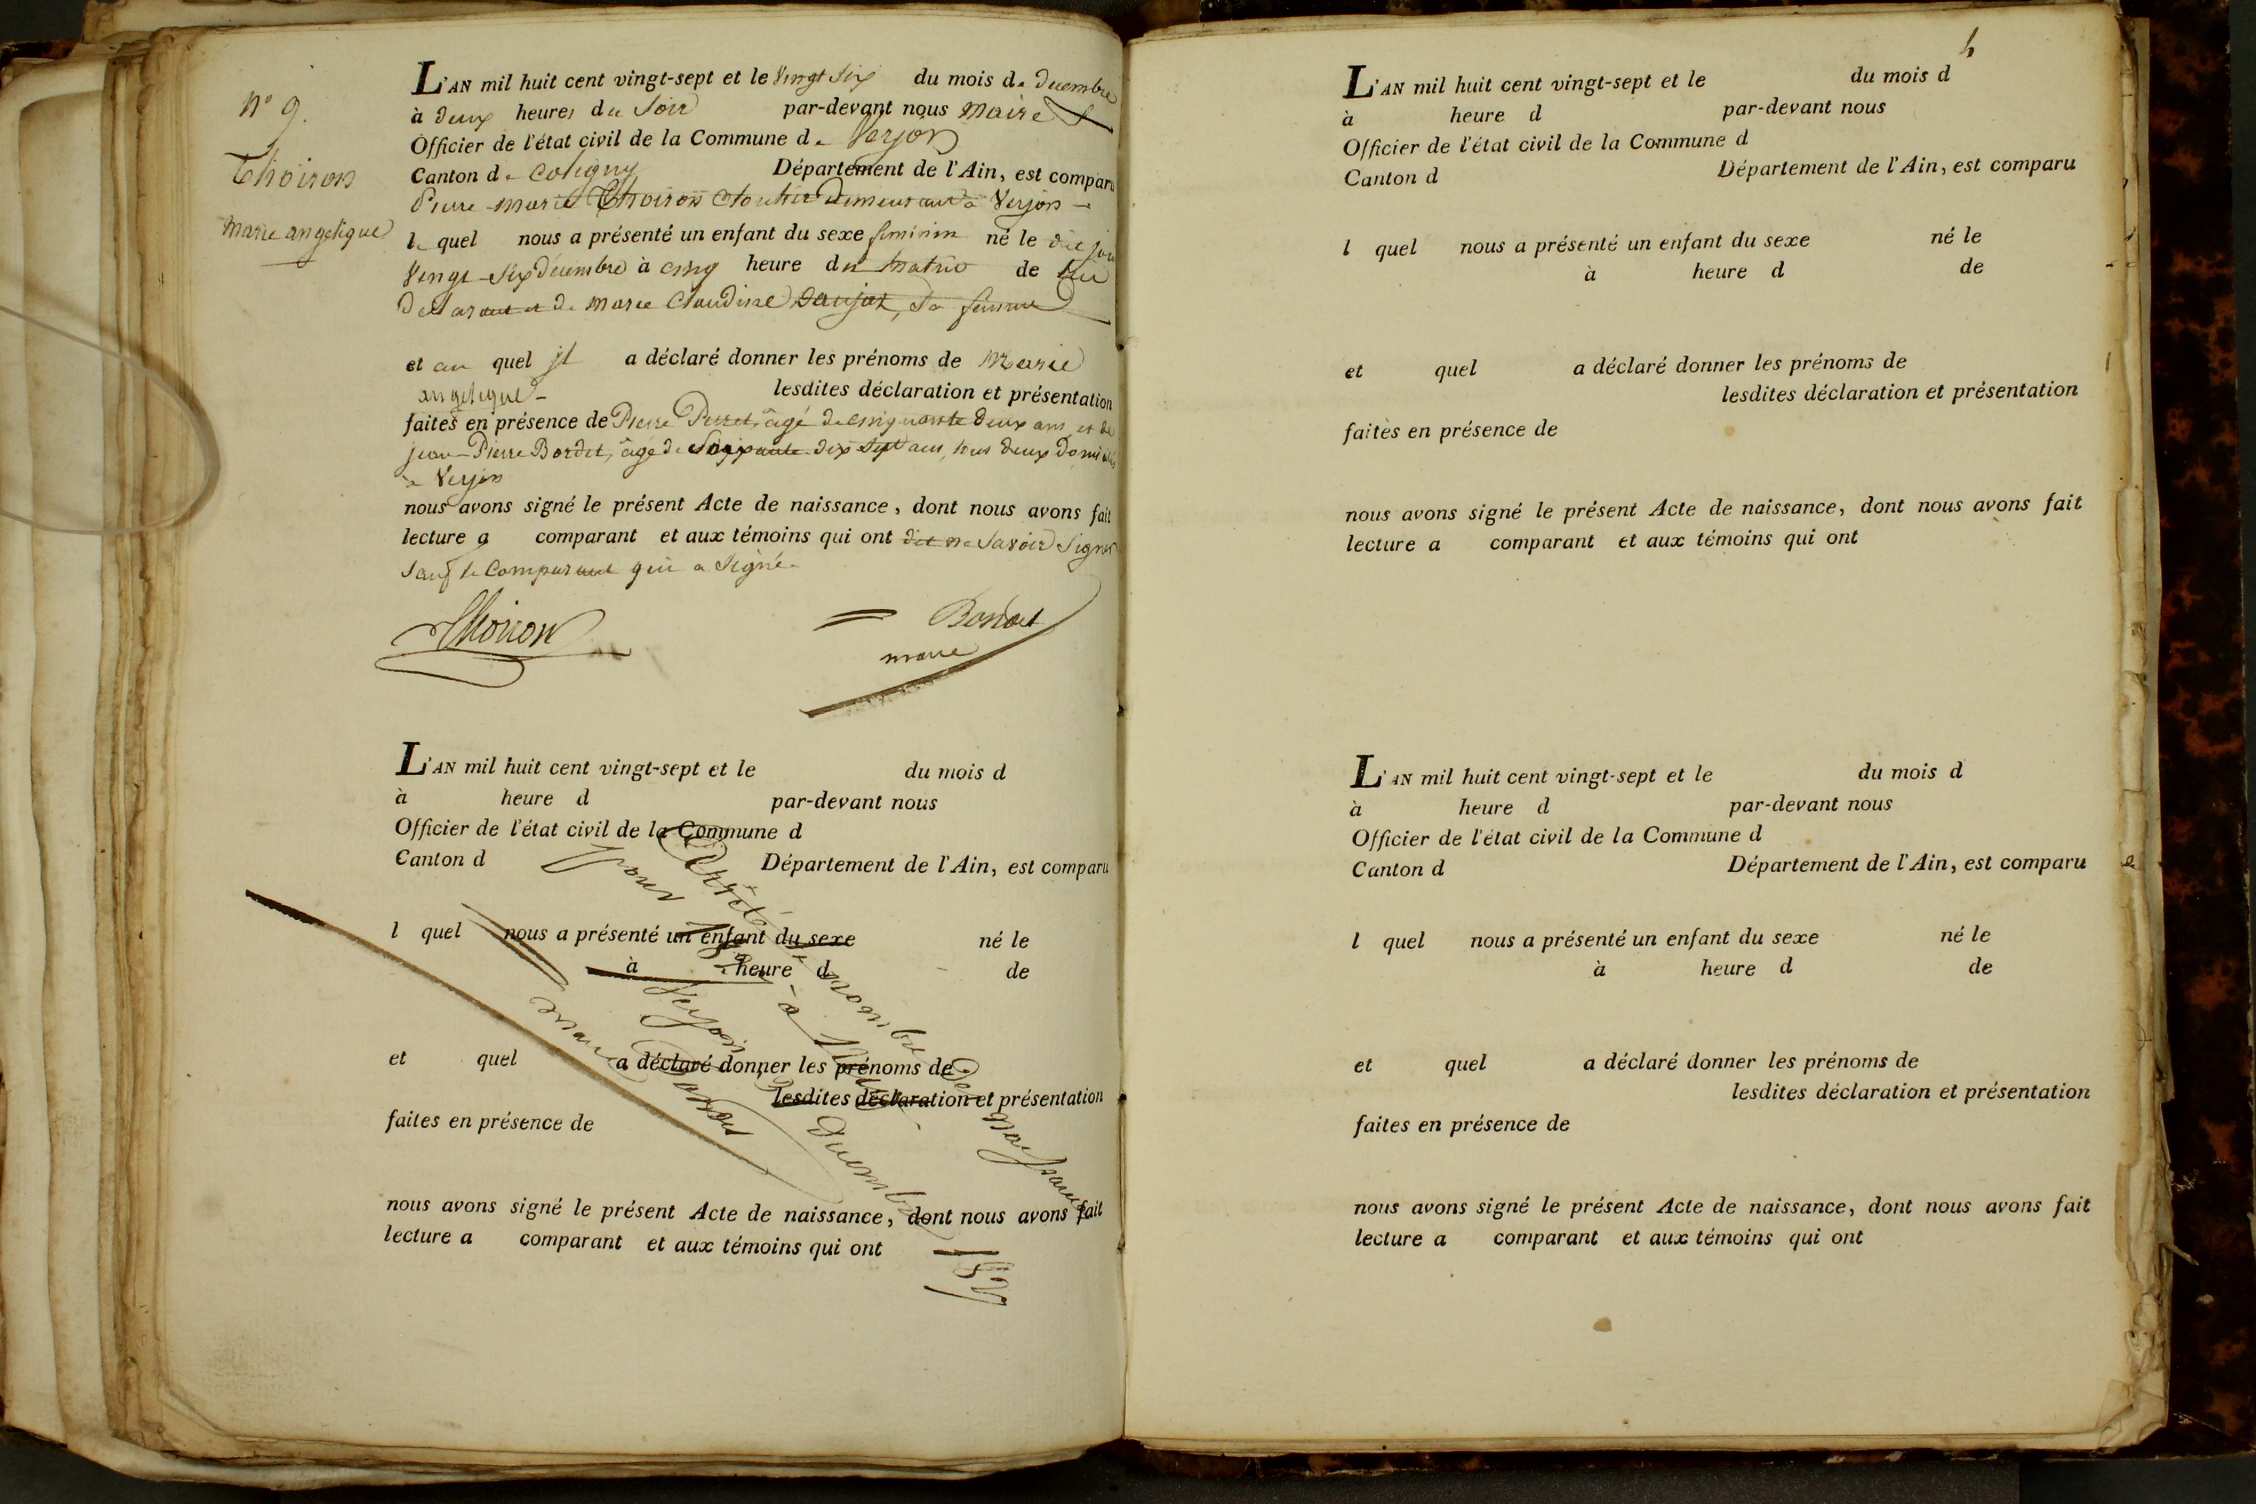 N° 9.
Thoiron
Marie angelique
L'AN mil huit cent vingt-sept et le Vingt Six du mois de Decembre
à deux heures du Soir par-devant nous Maire
Officier de l'état civil de la Commune de Verjon
Canton de Coligny Département de l'Ain, est comparu
Pierre Marie Thoiron Cloutier Demeurant à Verjon
le quel nous a présenté un enfant du sexe feminin né le dit jour
Vingt-Six Décembre à cinq heure du Matin de lui
Déclarant et de Marie Claudine Daujat, Sa femme
et au quel il a déclaré donner les prénoms de Marie
angelique lesdites déclaration et présentation
faites en présence de Pierre Perret, âgé de cinquante Deux ans et de
jean-Pierre Bordet, âgé de Soixante dix Sept ans, tous deux Domiciliés
à Verjon
nous avons signé le présent Acte de naissance, dont nous avons fait
lecture a comparant et aux témoins qui ont dit ne Savoir Signer
Sauf le Comparant qui a Signé.
Thoiron
maire
L'AN mil huit cent vingt-sept et le du mois d
à heure d par-devant nous
Officier de l'état civil de la Commune d
Canton d Département de l'Ain, est comparu
l quel nous a présenté un enfant du sexe né le
à heure d de
et quel a déclaré donner les prénoms de
lesdites déclaration et présentation
faites en présence de
nous avons signé le présent Acte de naissance, dont nous avons fait
lecture a comparant et aux témoins qui ont
Arrêté le nombre Des Naissances
pour 1827 à
Verjon Decembre 1827
maire
L'AN mil huit cent vingt-sept et le du mois d
à heure d par-devant nous
Officier de l'état civil de la Commune d
Canton d Département de l'Ain, est comparu
l quel nous a présenté un enfant du sexe né le
à heure d de
et quel a déclaré donner les prénoms de
lesdites déclaration et présentation
faites en présence de
nous avons signé le présent Acte de naissance, dont nous avons fait
lecture a comparant et aux témoins qui ont
L'AN mil huit cent vingt-sept et le du mois d
à heure d par-devant nous
Officier de l'état civil de la Commune d
Canton d Département de l'Ain, est comparu
l quel nous a présenté un enfant du sexe né le
à heure d de
et quel a déclaré donner les prénoms de
lesdites déclaration et présentation
faites en présence de
nous avons signé le présent Acte de naissance, dont nous avons fait
lecture a comparant et aux témoins qui ont